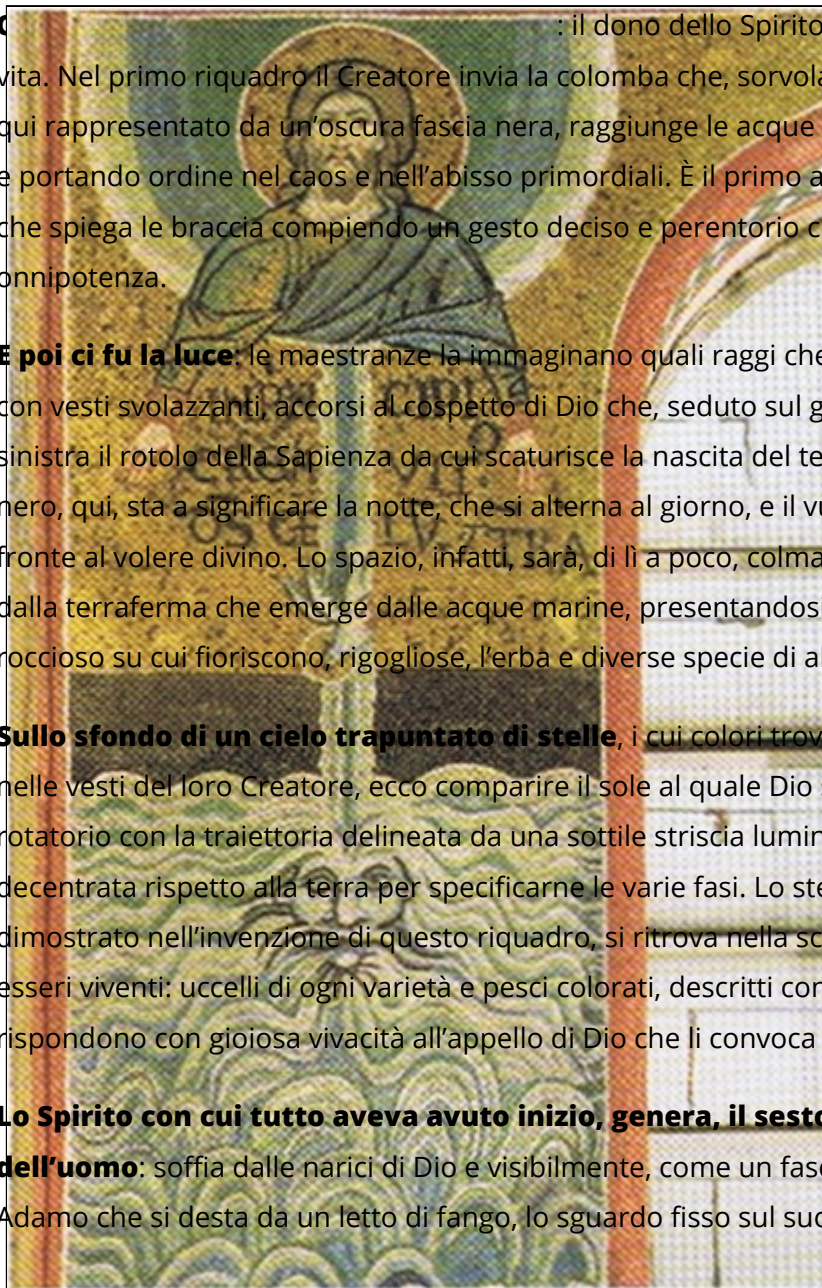 : il dono dello Spirito
vita. Nel primo riquadro il Creatore invia la colomba che,
qui rappresentato da un'oscura fascia nera, raggiunge le acque
e portando ordine nel caos e nell'abisso primordiali. È il primo
che spiega le braccia compiendo un gesto deciso e perentorio
onnipotenza.
E poi ci fu la luce: le maestranze la immaginano quali raggi che
con vesti svolazzanti, accorsi al cospetto di Dio che, seduto sul
sinistra il rotolo della Sapienza da cui scaturisce la nascita del
nero, qui, sta a significare la notte, che si alterna al giorno, e il
fronte al volere divino. Lo spazio, infatti, sarà, di lì a poco,
dalla terraferma che emerge dalle acque marine, presentandosi
roccioso su cui fioriscono, rigogliose, l'erba e diverse specie di
Sullo sfondo di un cielo trapuntato di stelle, i cui colori
nelle vesti del loro Creatore, ecco comparire il sole al quale Dio
rotatorio con la traiettoria delineata da una sottile striscia
decentrata rispetto alla terra per specificarne le varie fasi. Lo
dimostrato nell'invenzione di questo riquadro, si ritrova nella
esseri viventi: uccelli di ogni varietà e pesci colorati, descritti
rispondono con gioiosa vivacità all'appello di Dio che li convoca
Lo Spirito con cui tutto aveva avuto inizio, genera, il sesto
dell'uomo: soffia dalle narici di Dio e visibilmente, come un
Adamo che si desta da un letto di fango, lo sguardo fisso sul